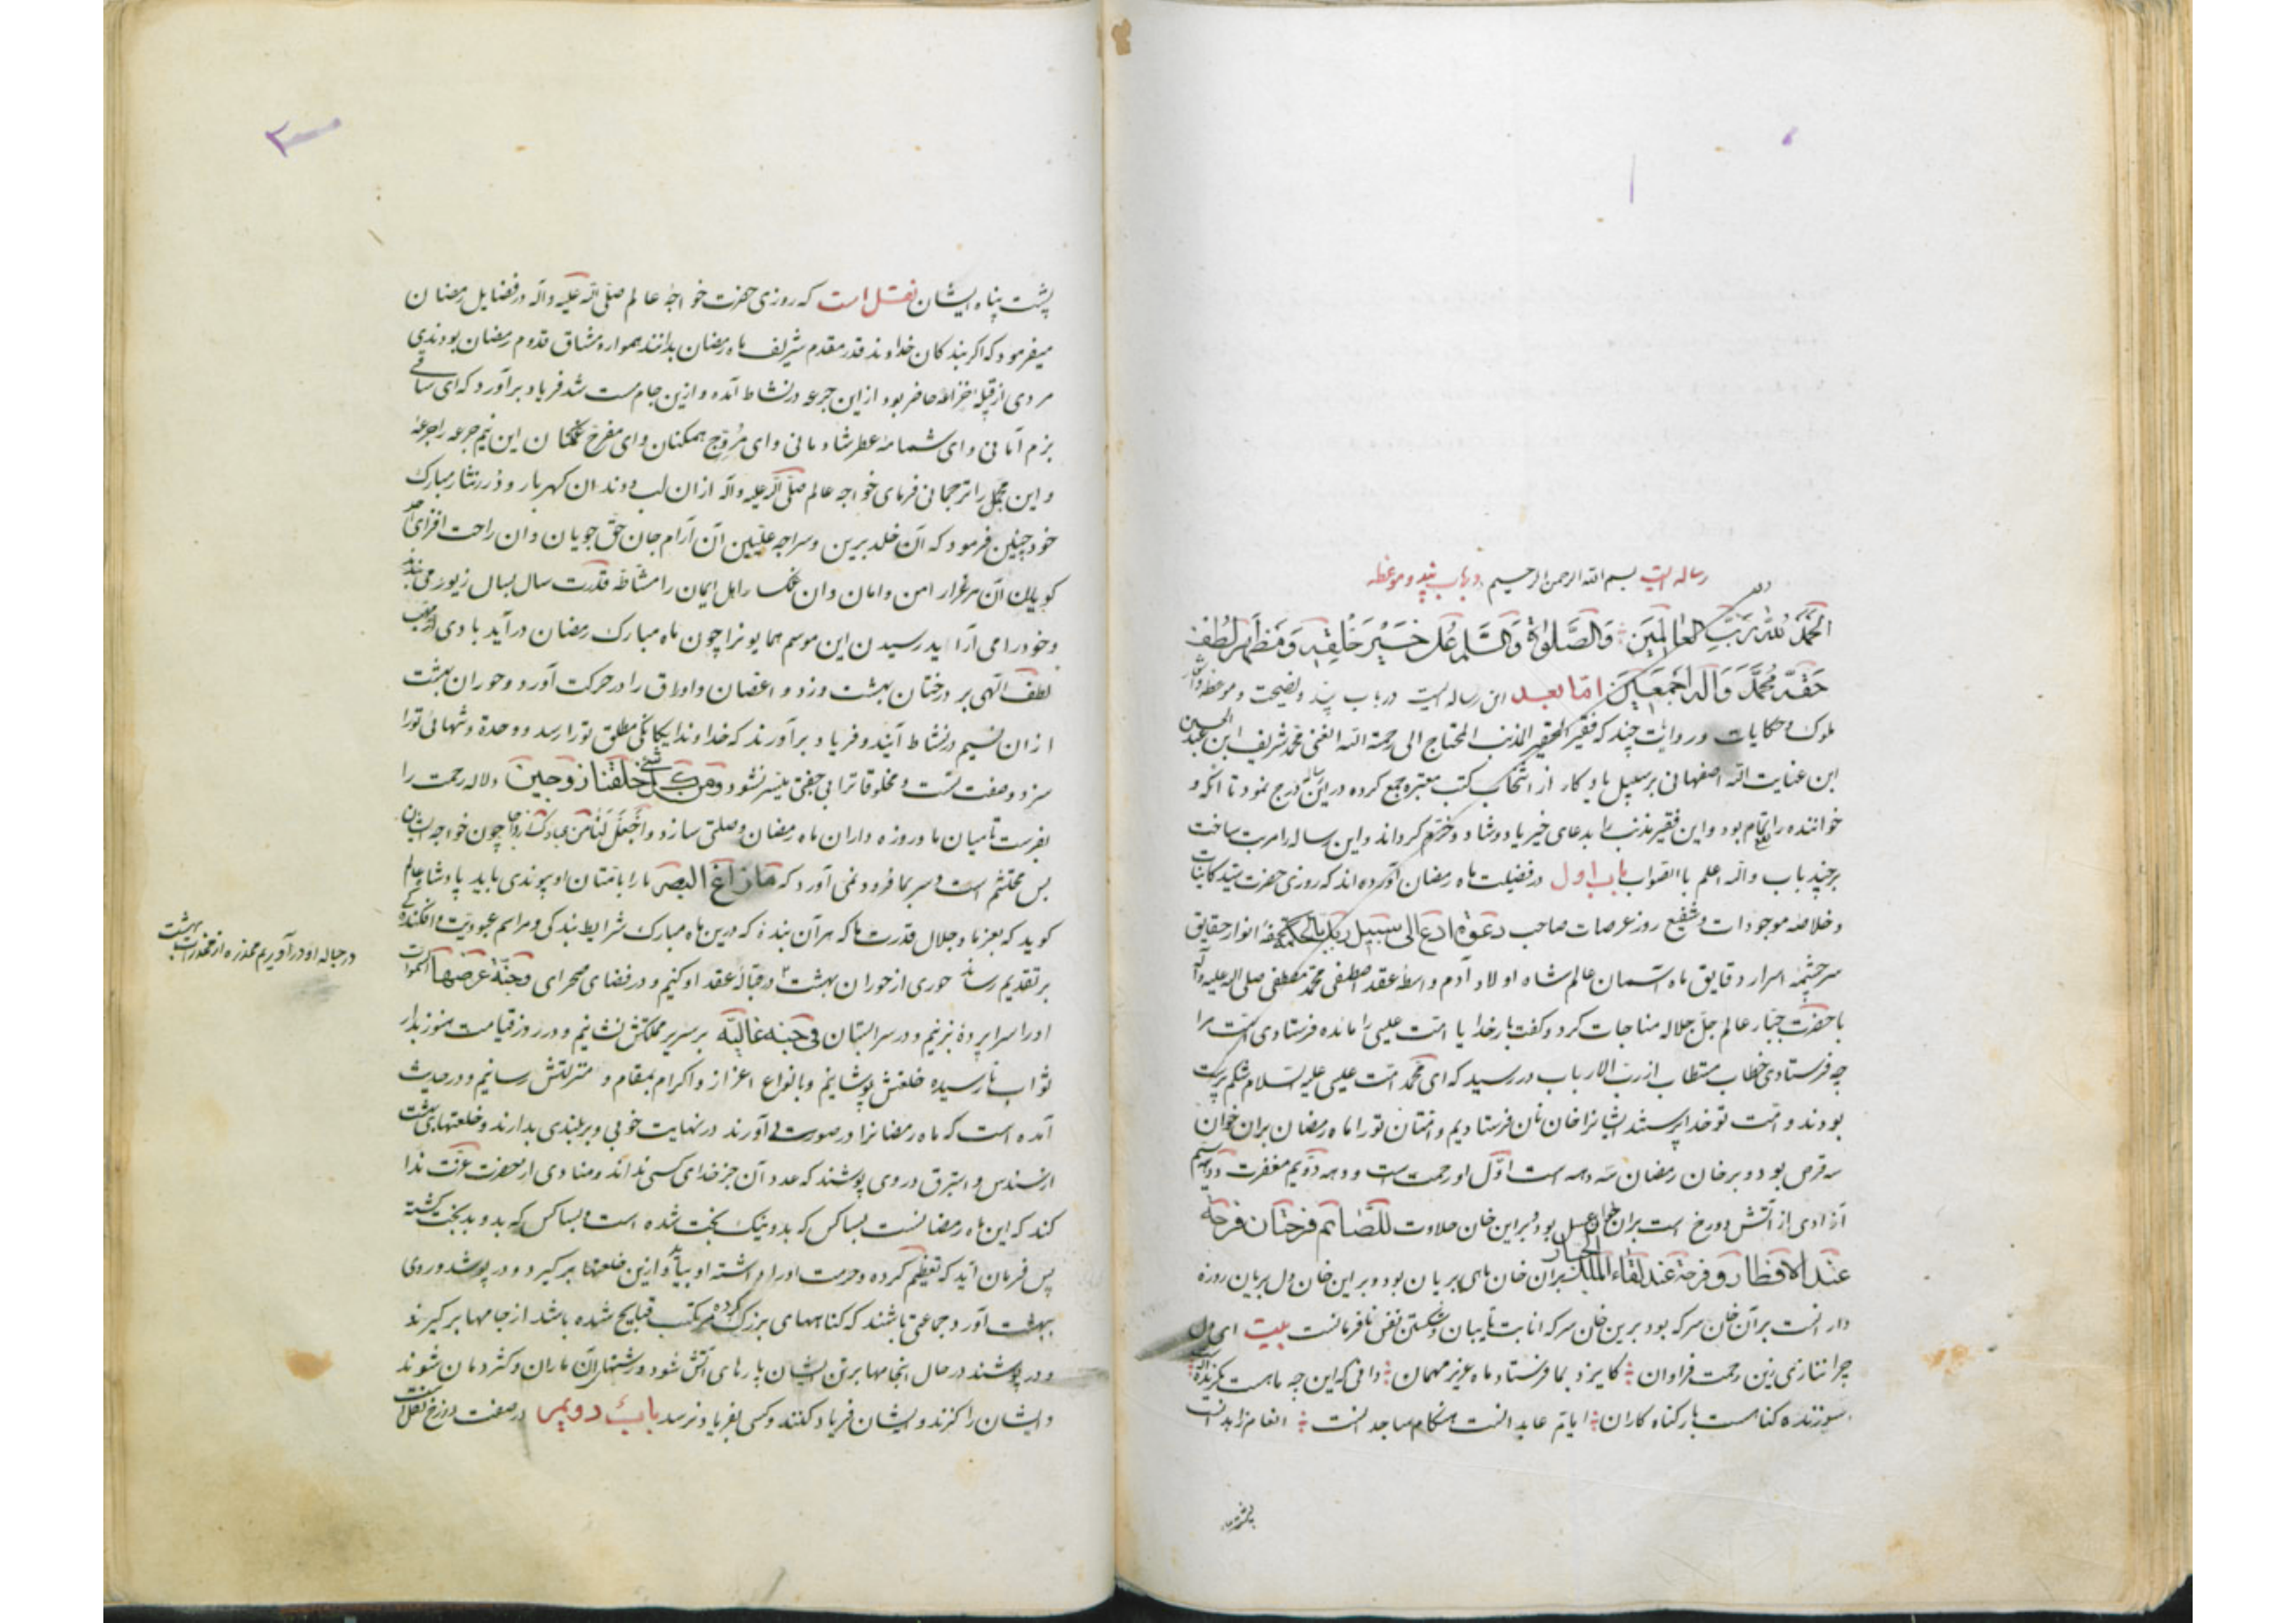 رساله ایست بسم الله الرحمن الرحیم در باب پند و موعظه
الحمد لله رب العالمین والصلوة والسلم علی خیر خلقه و مظهر لطف
حقه محمد و آله اجمعین اما بعد این رساله ایست در باب پند و نصیحت و موعظه
ملوک و حکایات و روایات چند که فقیر الحقیر المذنب المحتاج الی رحمة الله الغنی محمد شریف ابن عبد الحسین
ابن عنایت الله اصفهانی بر سبیل یادکار از انتخاب کتب معتبره جمع کرده در این رساله درج نمود تا آنکه و
خواننده را تمام بود و این فقیر مذنب را بدعای خیر یاد و شاد و خرم کرداند و این رساله را مرتب ساخت
بر چند باب والله اعلم باالصواب باب اول در فضیلت ماه رمضان آورده اند که روزی حضرت سید کاینات
و خلاصه موجودات و شفیع روز عرصات صاحب دعوة ادع الی سبیل ربک بالحکمة تحفهٔ انوار حقایق
سرچشمهٔ اسرار دقایق ماه آسمان عالم شاه اولاد آدم واسطهٔ عقد اصطفی محمد مصطفی صلی الله علیه وآله
با حضرت جبار عالم جل جلاله مناجات کرد و کفت بار خدا یا امت عیسی را مائده فرستادی امت مرا
چه فرستادی خطاب مستطاب از رب الارباب در رسید که ای محمد امت عیسی علیه السلام شکم پرست
بودند و امت تو خدا پرستند ایشانرا خان نان فرستادیم و امتان تو را ماه رمضان بران خوان
سه قرص بود و بر خان رمضان سه دهه است اول او رحمت است و دهه دویم مغفرت و دهه سیم
آزادی از آتش دوزخ است بران خوان عسل بود و بر این خان حلاوت للصائم فرحتان فرحة
عند الافطار و فرحة عند لقاء الملک الجبار بران خان ماهی بریان بود و بر این خان دل بریان روزه
دار انست بر آن خان سرکه بود برین خان سرکه انابت تایبان و شکستن نفس نافرمانست بیت ای دل
چرا ننازی زین رحمت فراوان کایزد بما فرستاد ماه عزیز مهمان دانی که این چه ماهست
سوزنده کناهست بار کناه کاران ایام عابد انست هنکام ساجد انست انعام زاهد انست
پشت پناه
پشت پناه ایشان نقل است که روزی حضرت خواجهٔ عالم صلی الله علیه وآله در فضایل رمضان
میفرمود که اکر بندکان خداوند قدر مقدم شریف ماه رمضان بدانند همواره مشتاق قدوم رمضان بودندی
مردی از قبیله خزاعه حاضر بود از این جرعه در نشاط آمده و ازین جام مست شد فریاد برآورد که ای ساقی
بزم آمانی و ای شمامهٔ عطر شادمانی و ای مروج همکنان و ای مفرح غمکنان این نیم جرعه را جرعهٔ
و این مجمل را ترجمانی فرمای خواجه عالم صلی الله علیه وآله از ان لب و دندان کهربار و درر نثار مبارک
خود چنین فرمود که آن خلد برین و سراچه علیین آن آرام جان حق جویان و ان راحت افزای احد
کویان آن مرغزار امن و امان و ان غمکسار اهل ایمان را مشاطه قدرت سال بسال زیور می بندد
و خود را می آراید رسیدن این موسم همایونرا چون ماه مبارک رمضان درآید بادی از مهب
لطف الهی بر درختان بهشت وزد و اغصان و اوراق را در حرکت آورد و حوران بهشت
از ان نسیم در نشاط آیند و فریاد برآورند که خداوندا یکانکی مطلق تو را رسد و وحدة و تنهائی تو را
سزد و صفت تست و مخلوقاترا بی جفتی میسر نشود و من کل شیء خلقنا زوجین دلاله رحمت را
بفرست تا میان ما و روزه داران ماه رمضان وصلتی سازد و اجعل لنا من عبادک ازواجا چون خواجه ایشان
بس محتشم است و سر بما فرود نمی آورد که ما زاغ البصر ما را با متان او پیوندی باید پادشاه عالم
کوید که بعز ما و جلال قدرت ما که هر آن بندهٔ که درین ماه مبارک شرایط بندکی و مراسم عبودیت و افکندکی
بر تقدیم رساند حوری از حوران بهشت در حبالهٔ عقد او کنیم و در فضای صحرای وجنة عرضها السموات
او را سراپردهٔ بزنیم و در سرابستان فی جنة عالیة بر سریر مملکتش نشانیم و در روز قیامت هنوز بدار
ثواب نارسیده خلعتش پوشانیم و بانواع اعزاز و اکرام بمقام و منزلتش رسانیم و در حدیث
آمده است که ماه رمضانرا در صورتی آورند در نهایت خوبی و بر بلندی بدارند و خلعتهای بهشت
از سندس و استبرق در وی پوشند که عدد آن جز خدای کسی نداند و منادی از حضرت عزت ندا
کند که این ماه رمضانست بسا کس که بدو نیک بخت شده است و بسا کس که بدو بدبخت کشته
پس فرمان آید که تعظیم کرده و حرمت او را داشته او بیاید و ازین خلعتها بر کیرد و در پوشد و روی
ببهشت آورد و جماعتی باشند که کناههای بزرک کرده مرتکب قبایح شده باشد از جامها بر کیرند
و در پوشند در حال انجامها بر تن ایشان پارهای آتش شود و رشتهای آن ماران و کژدمان شوند
و ایشان را کزند و ایشان فریاد کنند و کسی بفریاد نرسد باب دویم در صفت دوزخ نقل است
در حباله او درآوریم مخدره از مخدرات بهشت